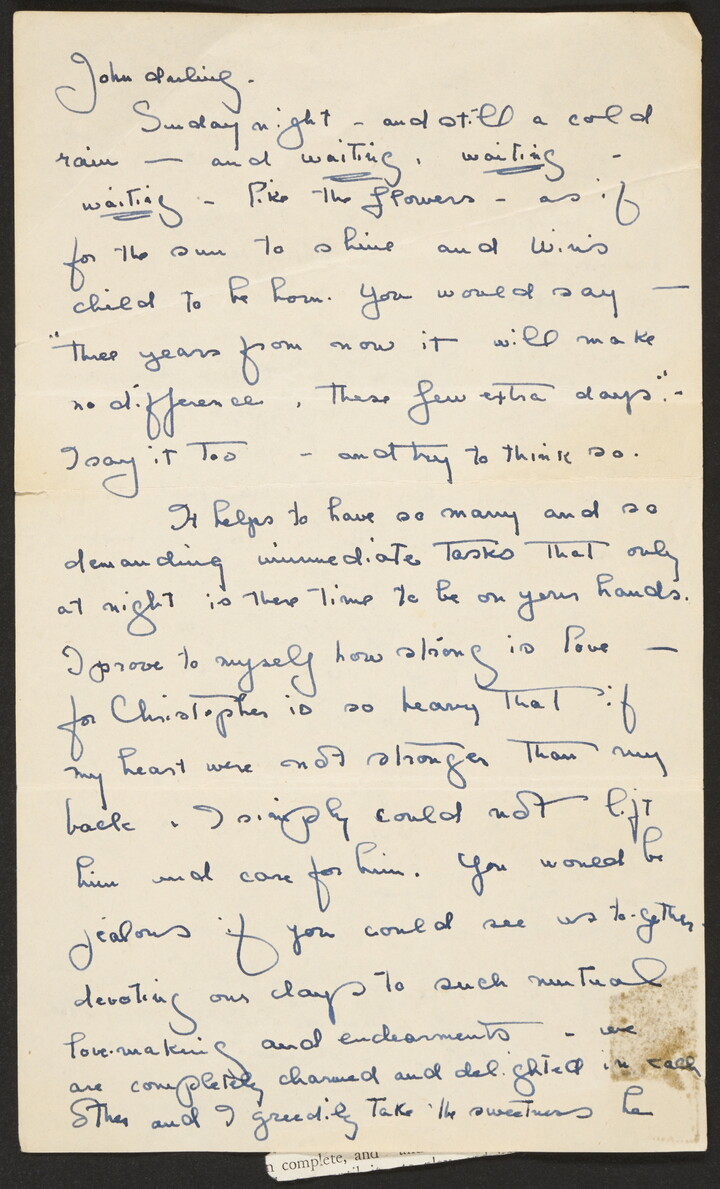 John darling.
Sunday night - and still a cold
rain — and waiting, waiting -
waiting - like the flowers - as if
for the sun to shine and Wini's
child to be born. You would say —
"three years from now it will make
no difference, these few extra days". -
I say it too - and try to think so.
It helps to have so many and so
demanding immediate tasks that only
at night is there time to be on your hands.
I prove to myself how strong is love —
for Christopher is so heavy that if
my heart were not stronger than my
back, I simply could not lift
him and care for him. You would be
jealous if you could see us to-gether.
devoting our days to such mutual
love-making and endearments - we
are completely charmed and delighted in each
other and I greedily take the sweetness he
n complete, and